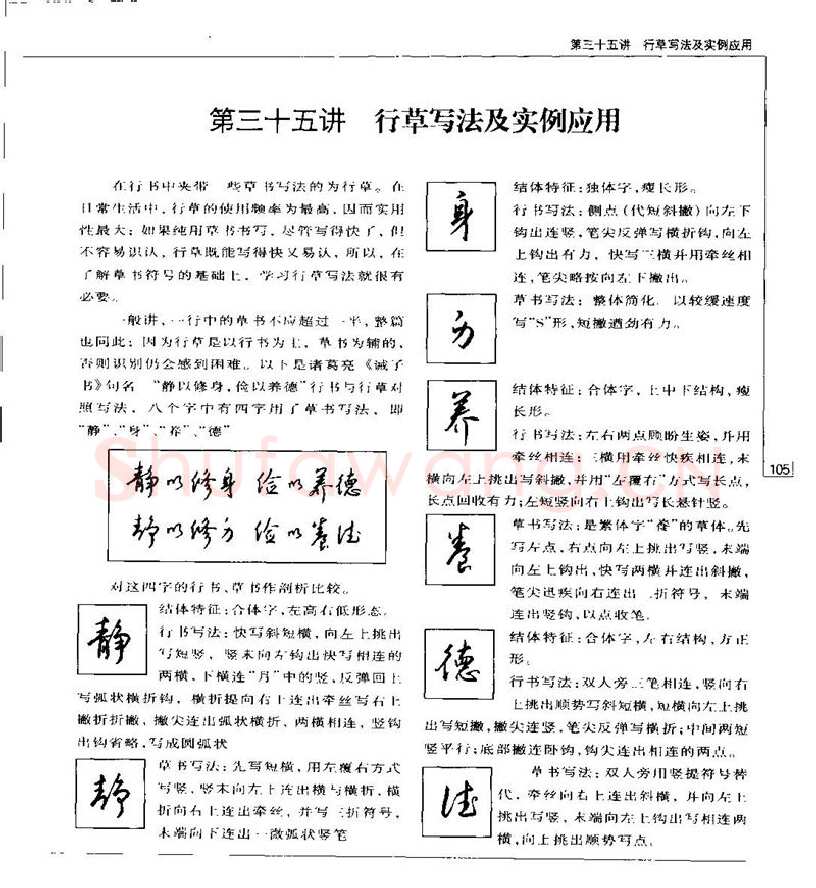 第三十五讲 行草写法及实例应用
第三十五讲 行草写法及实例应用
在行书中夹带 些草书写法的为行草。在
日常生活中，行草的使用频率为最高，因而实用
性最大；如果纯用草书书写，尽管写得快了，但
不容易识认，行草既能写得快又易认，所以，在
了解草书符号的基础上，学习行草写法就很有
必要。
一般讲，一行中的草书不应超过一半，整篇
也同此；因为行草是以行书为主，草书为辅的，
否则识别仍会感到困难。以下是诸葛亮《诫子
书》句名 “静以修身，俭以养德”行书与行草对
照写法，八个字中有四字用了草书写法，即
“静”、“身”、“养”、“德”
静以修身 俭以养德
静以修身 俭以养德
对这四字的行书、草书作剖析比较。
静
结体特征：合体字，左高右低形态。
行书写法：快写斜短横，向左上挑出
写短竖，竖末向左钩出快写相连的
两横，下横连“月”中的竖，反弹回上
写弧状横折钩，横折提向右上连出牵丝写右上
撇折折撇，撇尖连出弧状横折，两横相连，竖钩
出钩省略，写成圆弧状
静
草书写法：先写短横，用左覆右方式
写竖，竖末向左上连出横与横折，横
折向右上连出牵丝，并写三折符号，
末端向下连出一微弧状竖笔
身
结体特征：独体字，瘦长形。
行书写法：侧点（代短斜撇）向左下
钩出连竖，笔尖反弹写横折钩，向左
上钩出有力，快写三横并用牵丝相
连，笔尖略按向左下撇出。
身
草书写法：整体简化，以较缓速度
写“S”形，短撇遒劲有力。
养
结体特征：合体字，上中下结构，瘦
长形。
行书写法：左右两点顾盼生姿，并用
牵丝相连；三横用牵丝快疾相连，末
横向左上挑出写斜撇，并用“左覆右”方式写长点，
长点回收有力；左短竖向右上钩出写长悬针竖。
养
草书写法：是繁体字“養”的草体。先
写左点，右点向左上挑出写竖，末端
向左上钩出，快写两横并连出斜撇，
笔尖迅疾向右连出 折符号，末端
连出竖钩，以点收笔。
德
结体特征：合体字，左右结构，方正
形。
行书写法：双人旁三笔相连，竖向右
上挑出顺势写斜短横，短横向左上挑
出写短撇，撇尖连竖，笔尖反弹写横折；中间两短
竖平行；底部撇连卧钩，钩尖连出相连的两点。
德
草书写法：双人旁用竖提符号替
代，牵丝向右上连出斜横，并向左上
挑出写竖，末端向左上钩出写相连两
横，向上挑出顺势写点。
105
Shufawang.CN